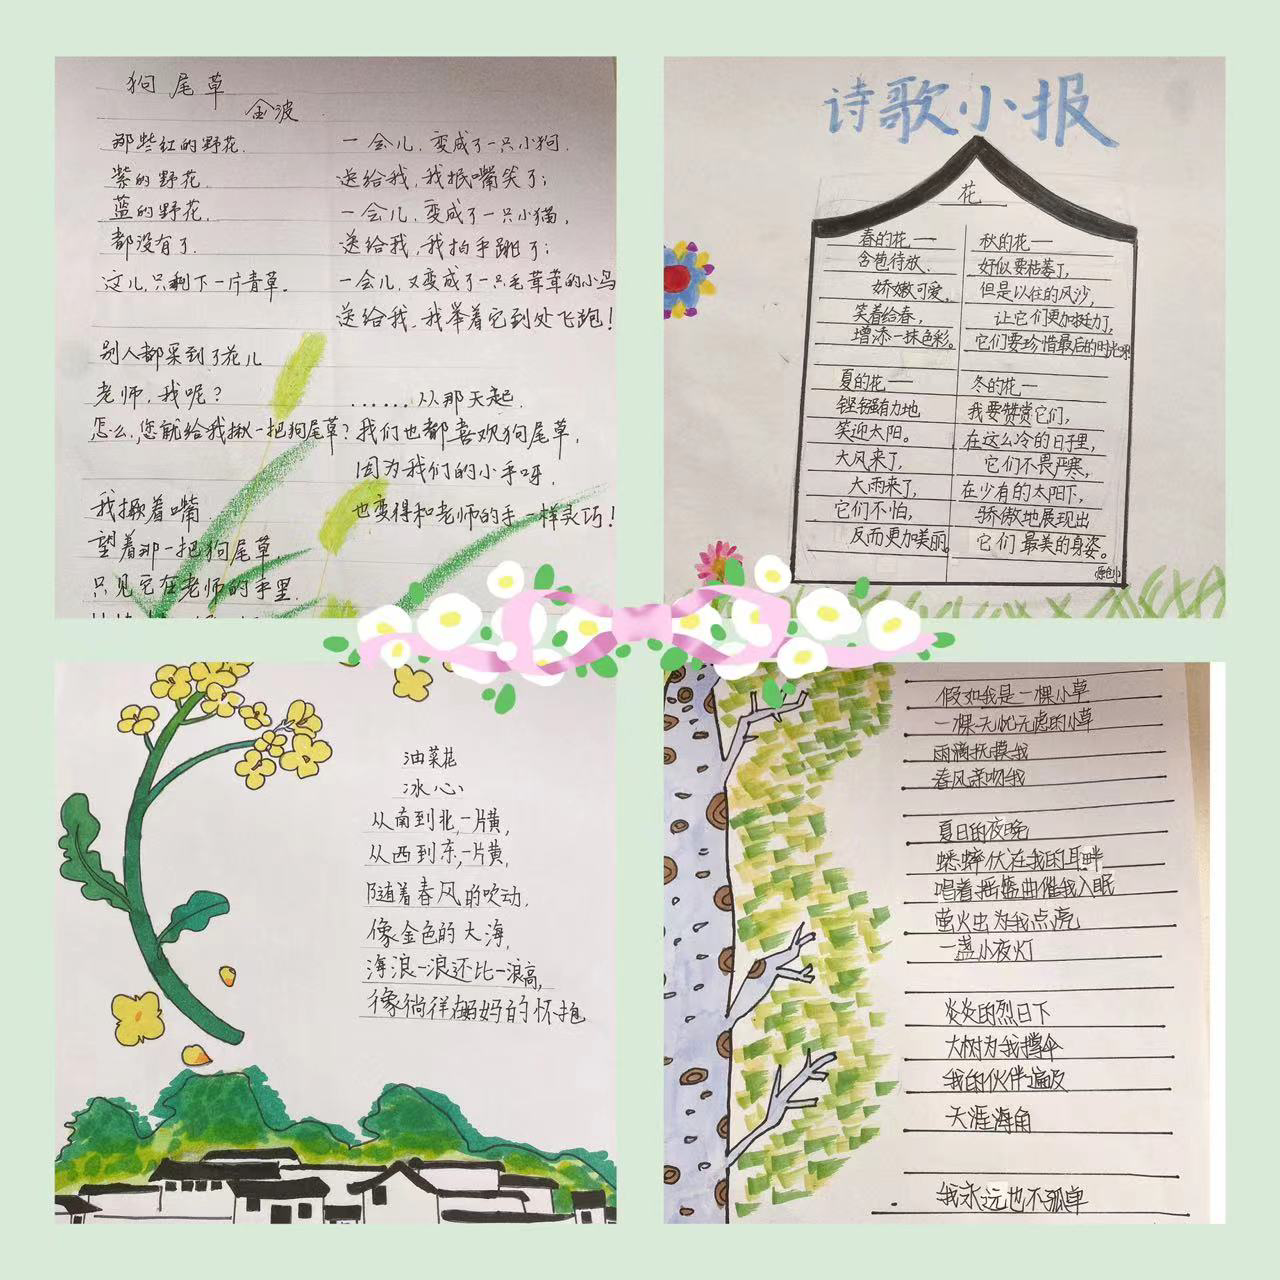 狗尾草
金波
那些红的野花.
紫的野花.
蓝的野花.
都没有了.
这儿,只剩下一片青草.
别人都采到了花儿
老师,我呢?
怎么,您就给我揪一把狗尾草?
我撅着嘴
望着那一把狗尾草
只见它在老师的手里.
一会儿,变成了一只小狗.
送给我,我抿嘴笑了;
一会儿,变成了一只小猫,
送给我,我拍手跳了;
一会儿,又变成了一只毛茸茸的小鸟
送给我,我举着它到处飞跑!
......从那天起.
我们也都喜欢狗尾草,
因为我们的小手呀.
也变得和老师的手一样灵巧!
诗歌小报
花
春的花——
含苞待放.
娇嫩可爱,
笑着给春,
增添一抹色彩。
夏的花——
铿锵有力地
笑迎太阳。
大风来了,
大雨来了,
它们不怕,
反而更加美丽。
秋的花——
好似要枯萎了,
但是以往的风沙,
让它们更加挺力了,
它们要珍惜最后的时光啊
冬的花——
我要赞赏它们,
在这么冷的日子里,
它们不畏严寒,
在少有的太阳下,
骄傲地展现出
它们最美的身姿。
原创
油菜花
冰心
从南到北,一片黄,
从西到东,一片黄,
随着春风的吹动,
像金色的大海,
海浪一浪还比一浪高,
像徜徉在妈妈的怀抱
假如我是一棵小草
一棵无忧无虑的小草
雨滴抚摸我
春风亲吻我
夏日的夜晚
蟋蟀伏在我的耳畔
唱着摇篮曲催我入眠
萤火虫为我点亮
一盏小夜灯
炎炎的烈日下
大树为我撑伞
我的伙伴遍及
天涯海角
我永远也不孤单